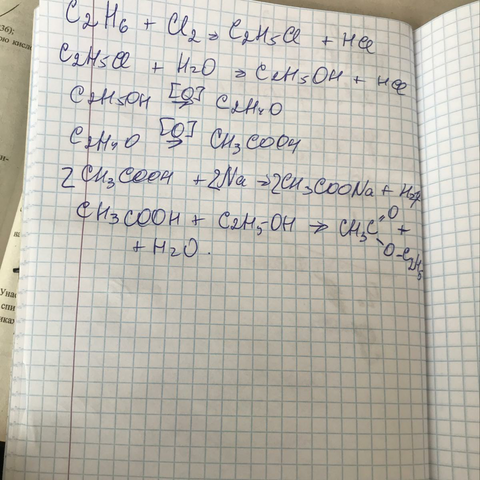 36);
ою кисло
C2H6 + Cl2 → C2H5Cl + HCl
C2H5Cl + H2O → C2H5OH + HCl
C2H5OH [O]→ C2H4O
C2H4O [O]→ CH3COOH
2CH3COOH + 2Na → 2CH3COONa + H2↑
CH3COOH + C2H5-OH → CH3C=O +
-O-C2H5
+ H2O.
Унас
спи
иках